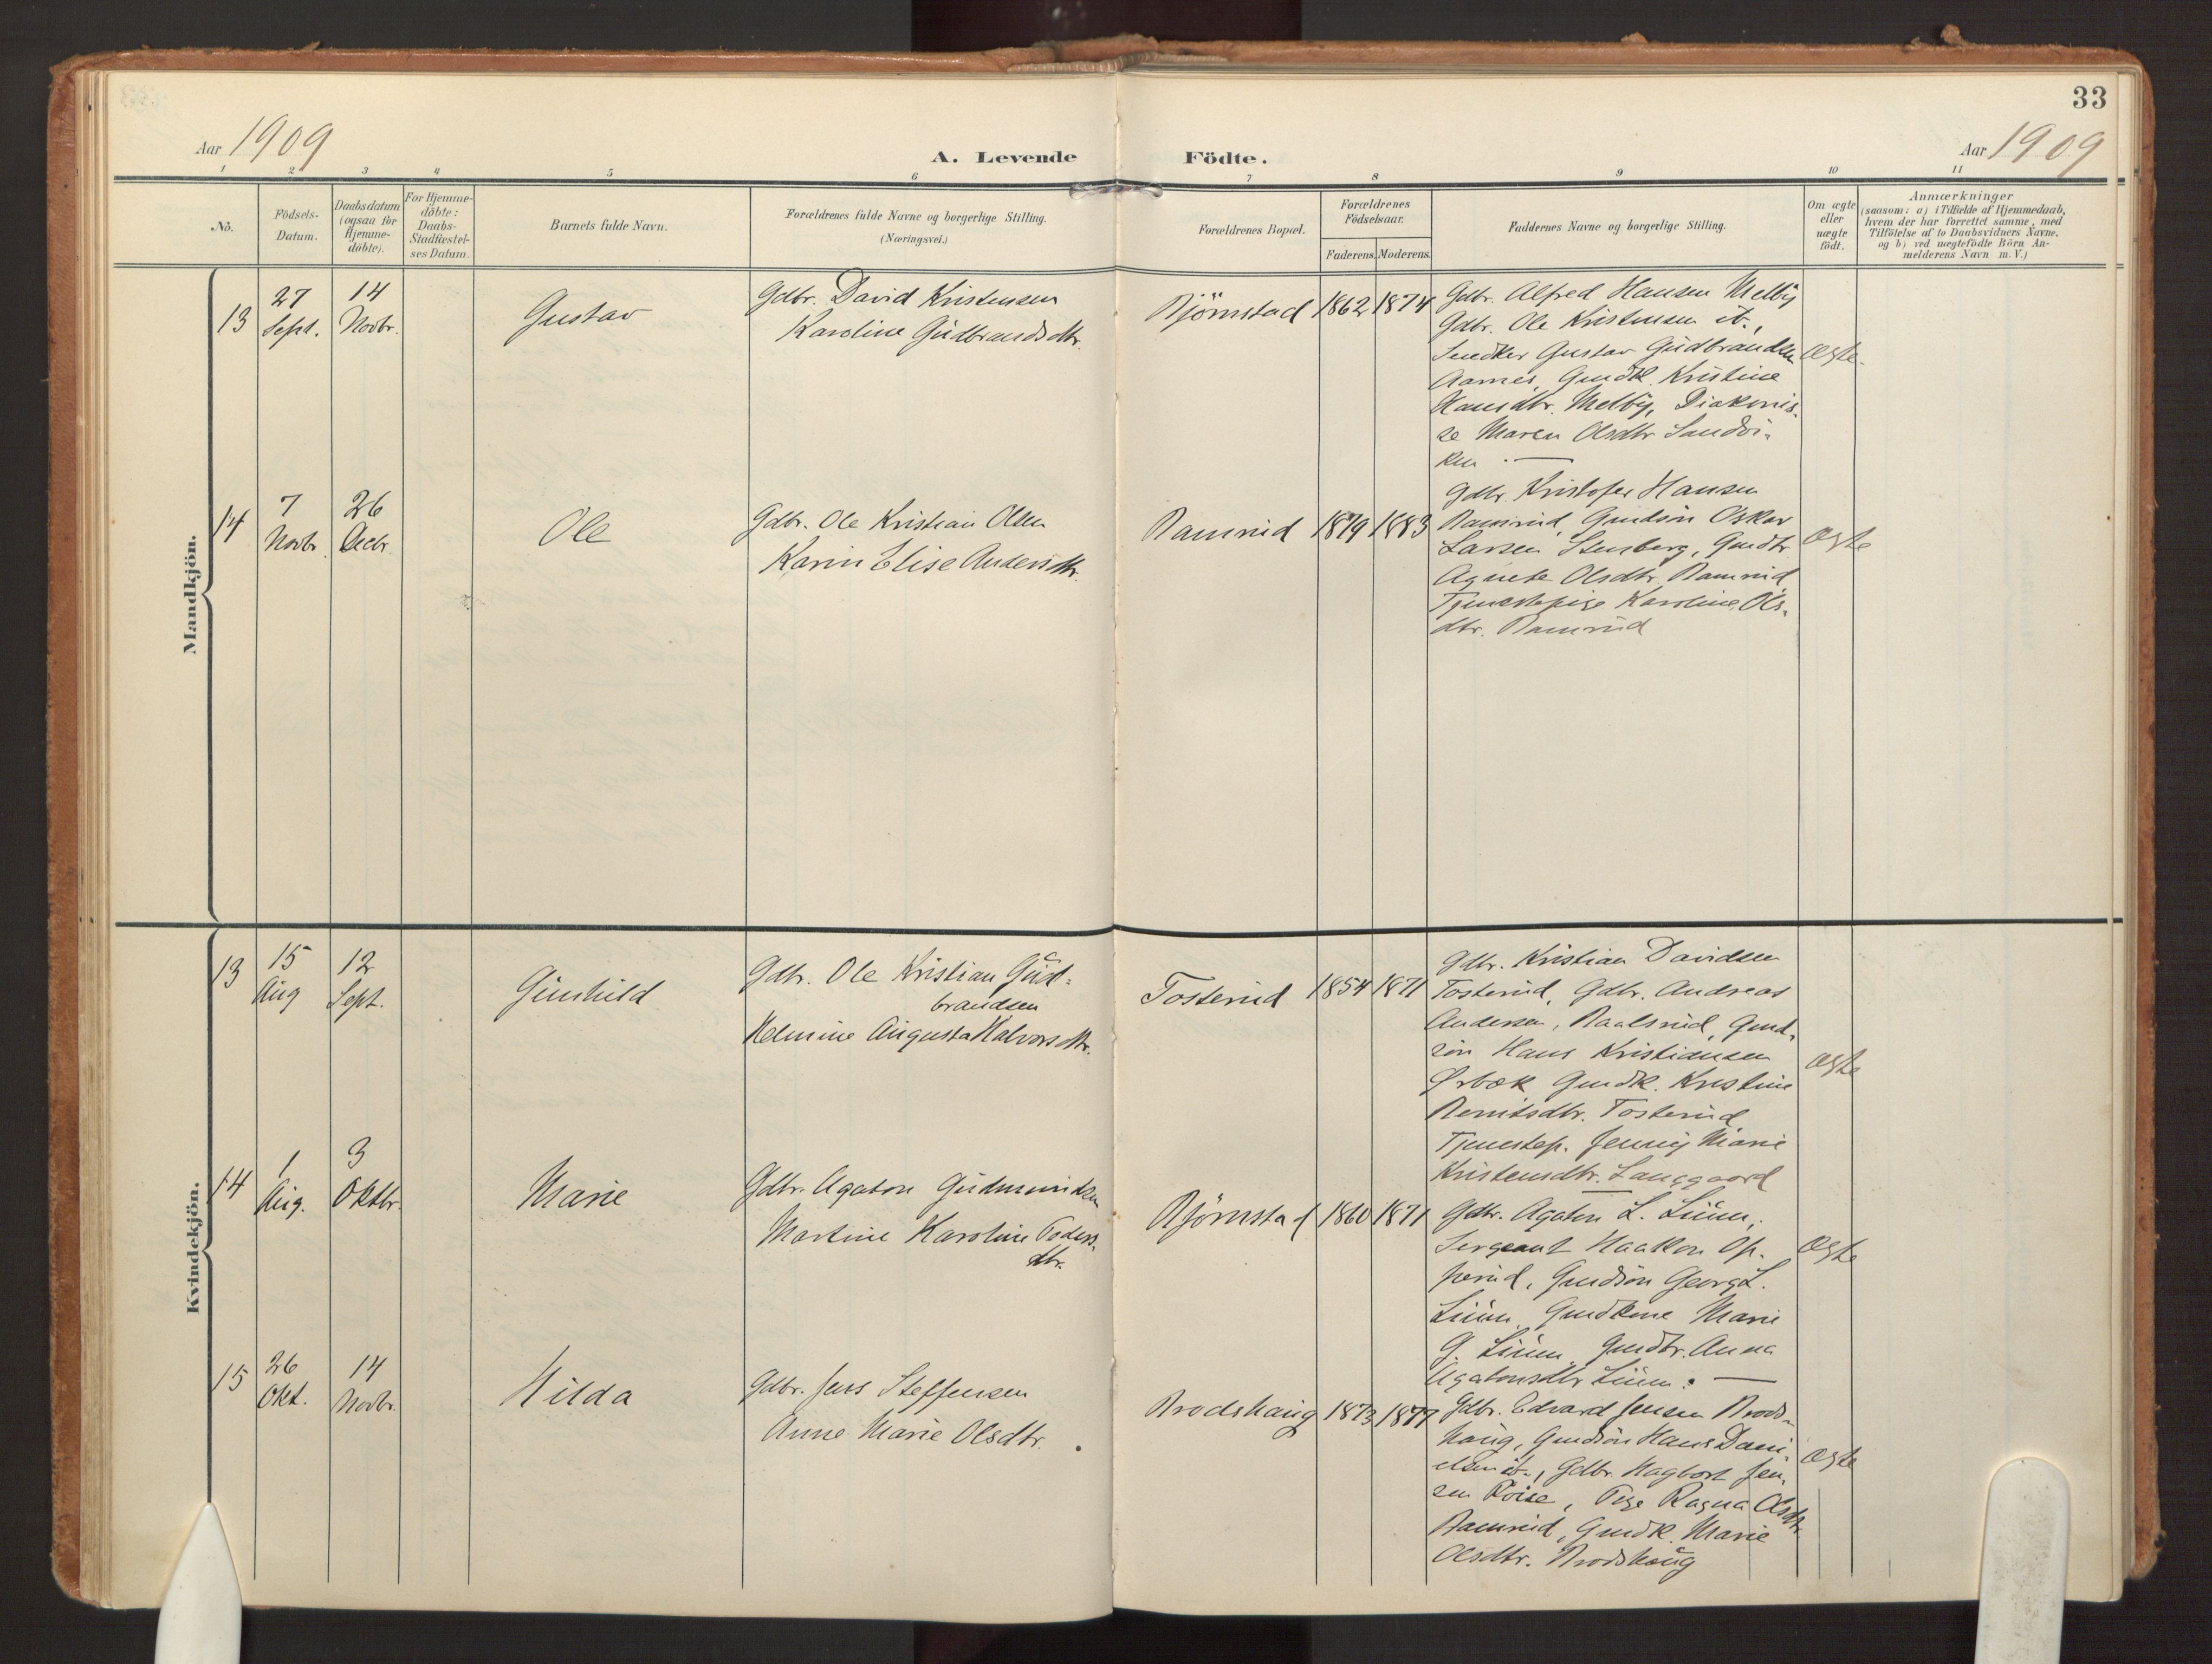 33
Aar 1909
A. Levende Födte.
Aar 1909
1 2 3 4 5 6 7 8 9 10 11
No.
Födsels-
Datum.
Daabsdatum
(ogsaa for
Hjemme-
döbte).
For Hjemme-
döbte:
Daabs-
Stadfæstel-
ses Datum.
Barnets fulde Navn.
Forældrenes fulde Navne og borgerlige Stilling.
(Næringsvei.)
Forældrenes Bopæl.
Forældrenes
Födselsaar.
Faderens. Moderens.
Faddernes Navne og borgerlige Stilling.
Om ægte
eller
uægte
födt.
Anmærkninger
(saasom: a) i Tilfælde af Hjemmedaab,
hvem der har forrettet samme, med
Tilföielse af to Daabsvidners Navne.
og b) ved uægtefödte Börn An-
melderens Navn m. V.)
Mandkjön.
13
27
Sept.
14
Novbr.
Gustav
Gdbr. David Kristensen
Karoline Gudbrandsdtr.
Björnstad
1862 1874
Gdbr. Alfred Hansen Melby
Gdbr. Ole Kristensen ib.,
Snedker Gustav Gudbrandsen
Aarnes, Gmdk. Kristine
Hansdtr. Melby, Diakonis-
se Maren Olsdtr Sandvi-
ken
ægte.
14
7
Novbr.
26
Decbr.
Ole
Gdbr. Ole Kristian Olsen
Karin Elise Andersdtr.
Ramrud
1879 1883
Gdbr. Kristofer Hansen
Ramrud, Gmdsön Oskar
Larsen Stenberg, Gmdtr.
Agnete Olsdtr. Ramrud
Tjenestepige Karoline Ols-
dtr. Ramrud
ægte
Kvindekjön.
13
15
Aug
12
Sept.
Gunhild
Gdbr. Ole Kristian Gud-
brandsen
Helmine Augusta Halvorsdtr.
Tosterud
1854 1871
Gdbr. Kristian Davidsen
Tosterud, Gdbr. Andreas
Andersen, Raalsrud, Gmd-
sön Hans Kristiansen
Ørbæk Gmdk. Kristine
Berntsdtr. Tosterud
Tjenestep. Jenny Marie
Kristensdtr. Langgaard
ægte
14
1
Aug.
3
Oktbr.
Marie
Gdbr. Agaton Gudmundsen
Martine Karoline Peders-
dtr.
Björnstad
1860 1871
Gdbr. Agaton L. Lium,
Sergeant Haakon Op-
perud, Gmdsön Georg L.
Lium, Gmdkone Marie
G. Lium, Gmdtr. Anna
Agatonsdtr Lium.
ægte
15
26
Okt.
14
Novbr.
Hilda
Gdbr. Jens Steffensen
Anne Marie Olsdtr.
Brodshaug
1873 1877
Gdbr. Edvard Jensen Brods-
haug, Gmdsön Hans Dani-
elsen ib., Gdbr. Hagbart Jen-
sen Roise, Pige Ragna Olsdtr.
Ramrud, Gmdk. Marie
Olsdtr. Brodshaug
ægte